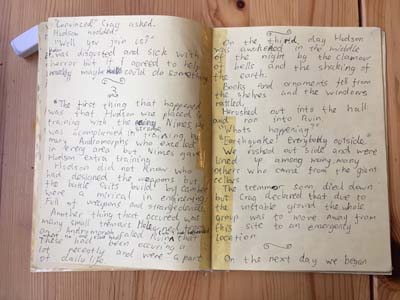 "Convinced" Crag asked.
Hudson nodded.
"Will you join us?"
I was disgusted and sick with
horror but if I agreed to help
maybe could do something
3
"The first thing that happened
was that Hudson was placed in
training with Nimes, he
was accomplished in training, by
many Andromorphs who excelled
in and Nimes gave
Hudson extra training
Hudson did not know who
had designed the weapons but
the battle suits build by
were a mirical in engineering.
Full of weapons and strange clouds.
Another thing that occured was
many small tremors
an Andromorph called Ruin
These had been occuring a
lot recently and were a part
of daily life
On the third day Hudson
was awakened in the middle
of the night by the clamour
of bells and the shacking of
the earth.
Books and ornaments fell from
the shelves and the windows
rattled.
He rushed out into the hall
and ran into Ruin
"Whats happening?"
"Earthquake! Everybody outside."
We rushed out side and were
lined up among many
others who came from the giant
cellars
The tremmor soon died down
but Crag declared that due to
the unstable ground the whole
group was to move away from
this site to an emergency
location.
On the next day we began